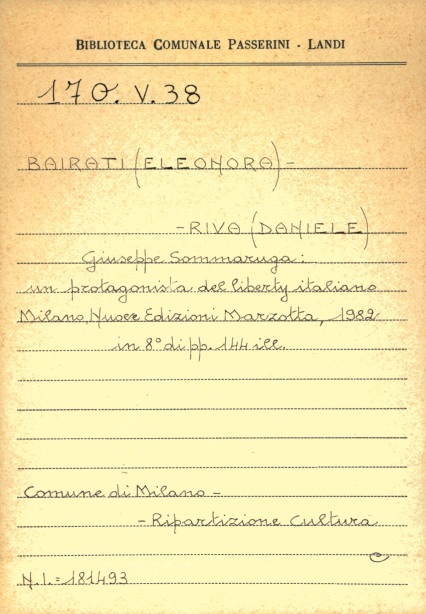 BIBLIOTECA COMUNALE PASSERINI - LANDI
170. V. 38
BAIRATI (ELEONORA) -
- RIVA (DANIELE)
Giuseppe Sommaruga:
un protagonista del liberty italiano
Milano, Nuove Edizioni Marzotta, 1982
in 8° di pp. 144 ill.
Comune di Milano -
- Ripartizione Cultura
C
N.I. = 181493